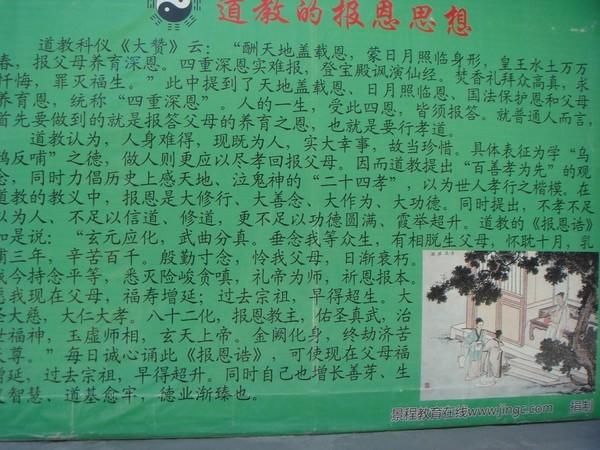 道教的报恩思想
道教科仪《大赞》云：“酬天地盖载恩，蒙日月照临身形，皇王水土万万
春，报父母养育深恩。四重深恩实难报，登宝殿讽演仙经。焚香礼拜众高真，求
忏悔，罪灭福生。”此中提到了天地盖载恩、日月照临恩、国法保护恩和父母
养育恩，统称“四重深恩”。人的一生，受此四恩，皆须报答。就普通人而言，
首先要做到的就是报答父母的养育之恩，也就是要行孝道。
道教认为，人身难得，现既为人，实大幸事，故当珍惜。具体表征为学“乌
鸦反哺”之德，做人则更应以尽孝回报父母。因而道教提出“百善孝为先”的观
念，同时力倡历史上感天地、泣鬼神的“二十四孝”，以为世人孝行之楷模。在
道教的教义中，报恩是大修行、大善念、大作为、大功德。同时提出，不孝不足
以为人、不足以信道、修道，更不足以功德圆满、霞举超升。道教的《报恩诰》
如是说：“玄元应化，武曲分真。垂念我等众生，有相脱生父母，怀耽十月，乳
哺三年，辛苦百千。殷勤寸念，怜我父母，日渐衰朽。
我今持念平等，悉灭险峻贪嗔，礼帝为师，祈恩报本。
愿我现在父母，福寿增延；过去宗祖，早得超生。大
圣大慈，大仁大孝。八十二化，报恩教主，佑圣真武，治
世福神，玉虚师相，玄天上帝。金阙化身，终劫济苦
天尊。”每日诚心诵此《报恩诰》，可使现在父母福
增延，过去宗祖，早得超升。同时自己也增长善芽、生
发智慧、道基愈牢，德业渐臻也。
景程教育在线www.jingc.com 捐制